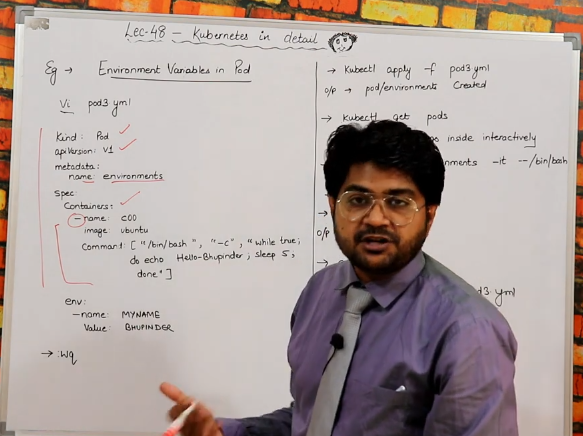 Lec-48 – Kubernetes in detail
Eg → Environment Variables in Pod
Vi pod3.yml
Kind: Pod
apiVersion: v1
metadata:
name: environments
spec:
Containers:
- name: c00
image: ubuntu
Command: ["/bin/bash", "-c", "while true;
do echo Hello-Bhupinder; sleep 5;
done"]
env:
- name: MYNAME
Value: BHUPINDER
→ :wq
→ Kubectl apply -f pod3.yml
o/p → pod/environments Created
→ Kubectl get pods
inside interactively
-it --/bin/bash
→
o/p
→
yml